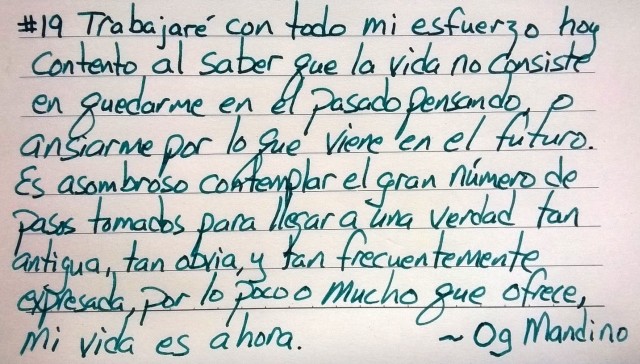 #19 Trabajaré con todo mi esfuerzo hoy
contento al saber que la vida no consiste
en quedarme en el pasado pensando, o
ansiarme por lo que viene en el futuro.
Es asombroso contemplar el gran número de
pasos tomados para llegar a una verdad tan
antigua, tan obvia, y tan frecuentemente
expresada, por lo poco o mucho que ofrece,
mi vida es ahora. ~ Og Mandino